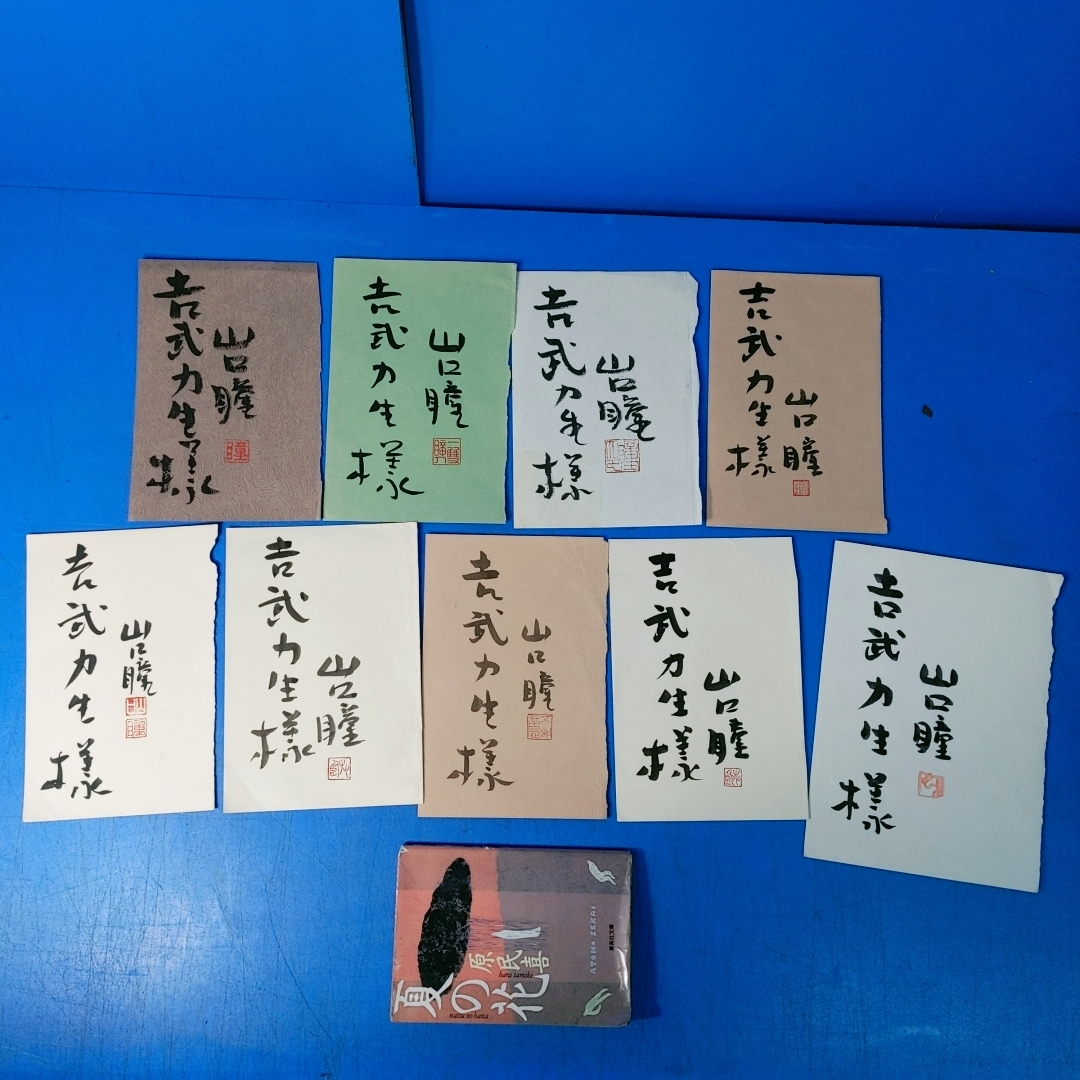 吉武力生様
山口瞳
吉武力生様
山口瞳
吉武力生様
山口瞳
吉武力生様
山口瞳
吉武力生様
山口瞳
吉武力生様
山口瞳
吉武力生様
山口瞳
吉武力生様
山口瞳
吉武力生様
山口瞳
原民喜
hara tamiki
夏の花
natsu no hana
集英社文庫